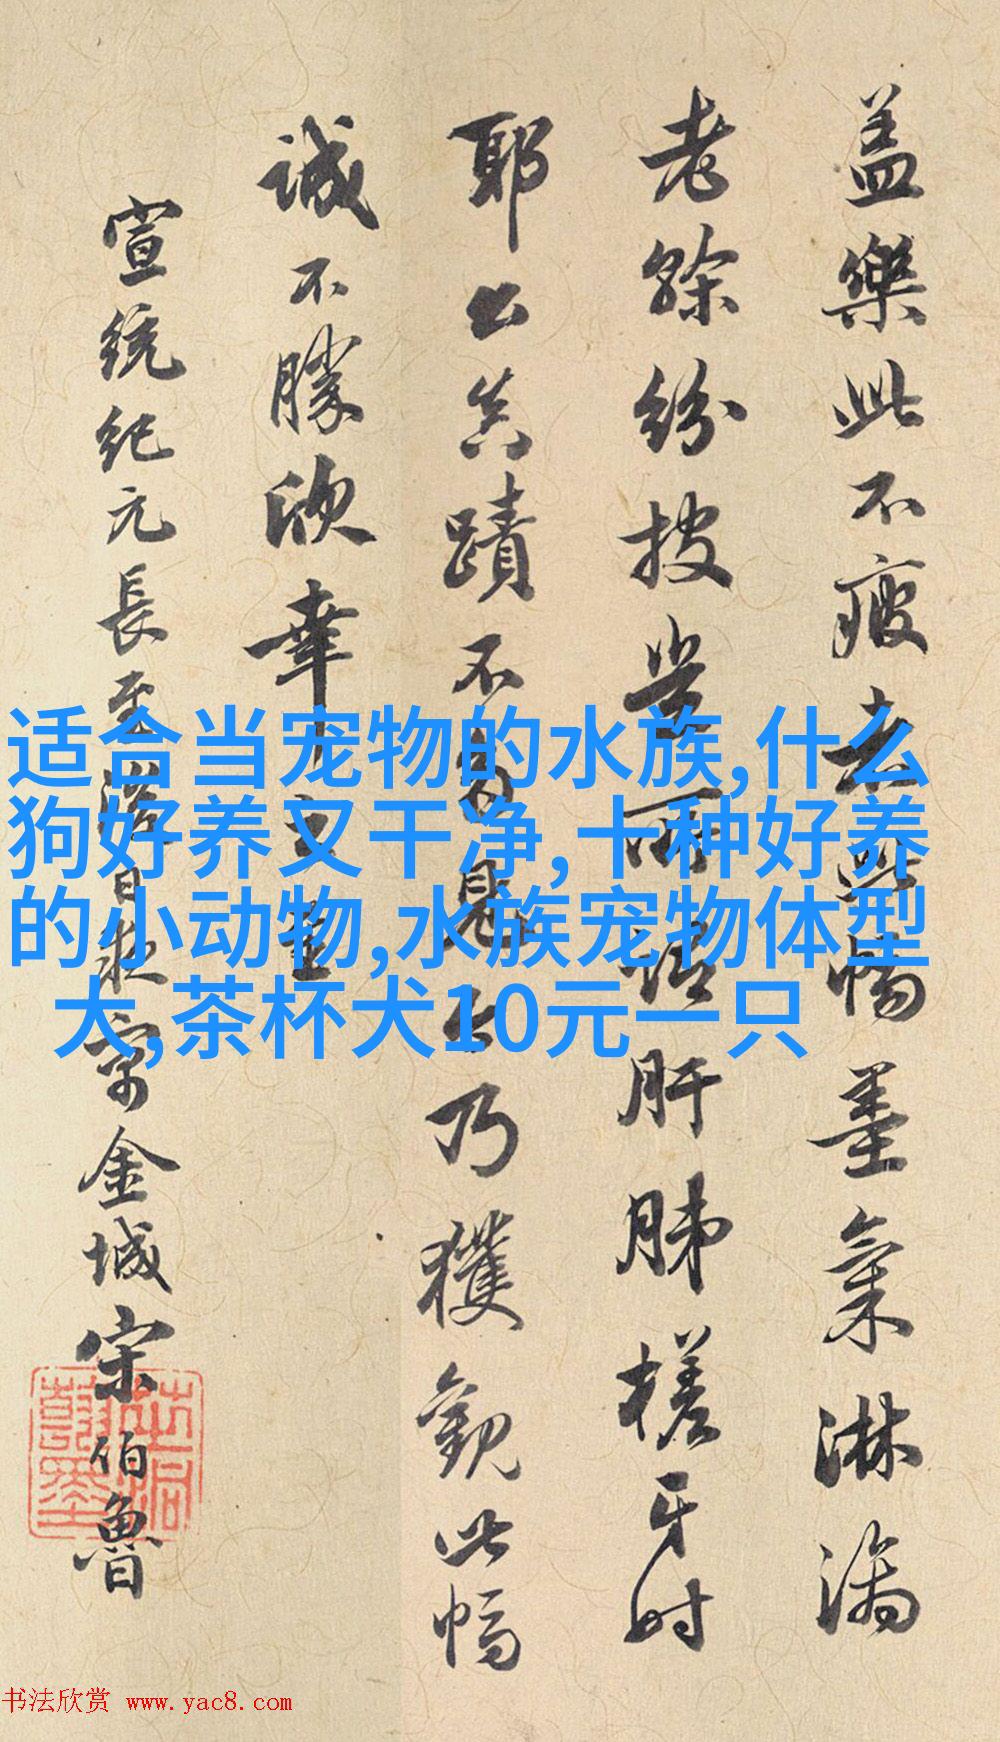 盖樂此不疲老去
老餘紛披
耶公真蹟不易見
乃獲觀此幅
誠不勝欣幸
宣统纪元長至
金城宋伯魯
墨氣淋漓
肝肺槎牙时
适合当宠物的水族,什么
狗好养又干净,十种好养
的小动物,水族宠物体型
大,茶杯犬10元一只
书法欣赏 www.yac8.com